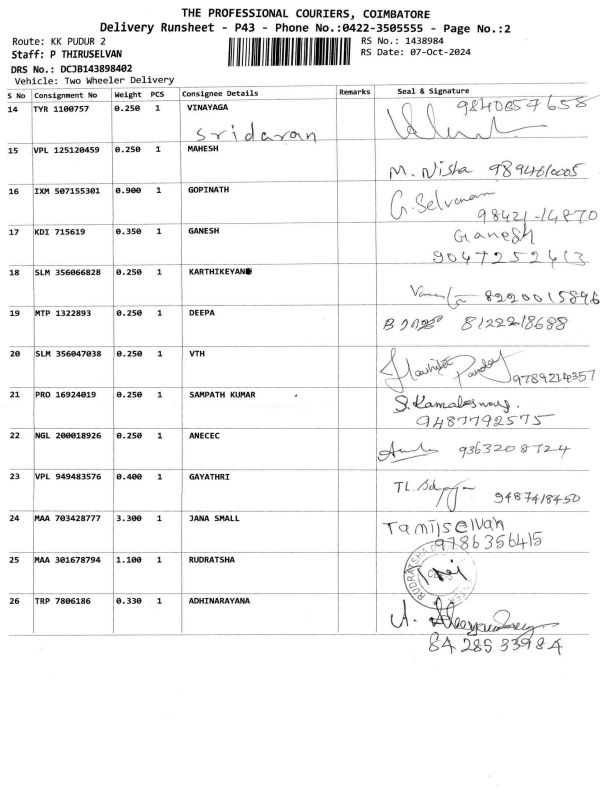 THE PROFESSIONAL COURIERS, COIMBATORE
Delivery Runsheet - P43 - Phone No.:0422-3505555 - Page No.:2
Route: KK PUDUR 2 RS No.: 1438984
Staff: P THIRUSELVAN RS Date: 07-Oct-2024
DRS No.: DCJB143898402
Vehicle: Two Wheeler Delivery
S No Consignment No Weight PCS Consignee Details Remarks Seal & Signature
14 TYR 1100757 0.250 1 VINAYAGA 9840857658
Sridaran
15 VPL 125120459 0.250 1 MAHESH
M. Nisha 9894610005
16 IXM 507155301 0.900 1 GOPINATH
G. Selvanam
98421-14870
17 KDI 715619 0.350 1 GANESH Ganesh
9047252413
18 SLM 356066828 0.250 1 KARTHIKEYAN
8220015896
19 MTP 1322893 0.250 1 DEEPA
8122218688
20 SLM 356047038 0.250 1 VTH
Pandey 9789214357
21 PRO 16924019 0.250 1 SAMPATH KUMAR S. Kamaleswary.
9487792575
22 NGL 200018926 0.250 1 ANECEC
9363208724
23 VPL 949483576 0.400 1 GAYATHRI
TL. 9487418450
24 MAA 703428777 3.300 1 JANA SMALL Tamilselvan
9786356415
25 MAA 301678794 1.100 1 RUDRATSHA
RUDRATSHA
26 TRP 7806186 0.330 1 ADHINARAYANA
84 285 33984